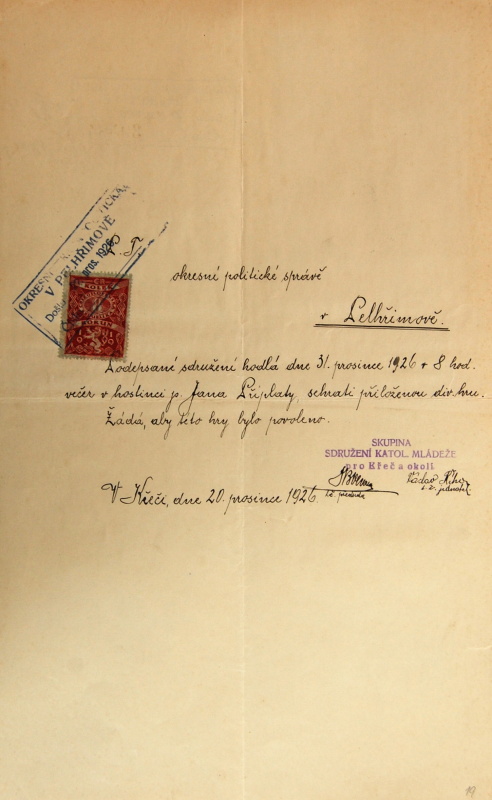 OKRESNÍ
V PELHŘIMOVĚ
pros. 1926
P. T.
KOLEK
KORUN
okresní politické správě
v Pelhřimově.
Podepsané sdružení hodlá dne 31. prosince 1926 v 8 hod.
večer v hostinci p. Jana Příplaty, sehrati přiloženou div. hru.
Žádá, aby této hry bylo povoleno.
SKUPINA
SDRUŽENÍ KATOL. MLÁDEŽE
pro Křeč a okolí
V Křeči, dne 20. prosince 1926.
t. č. předseda
Václav
t. č. jednatel
19